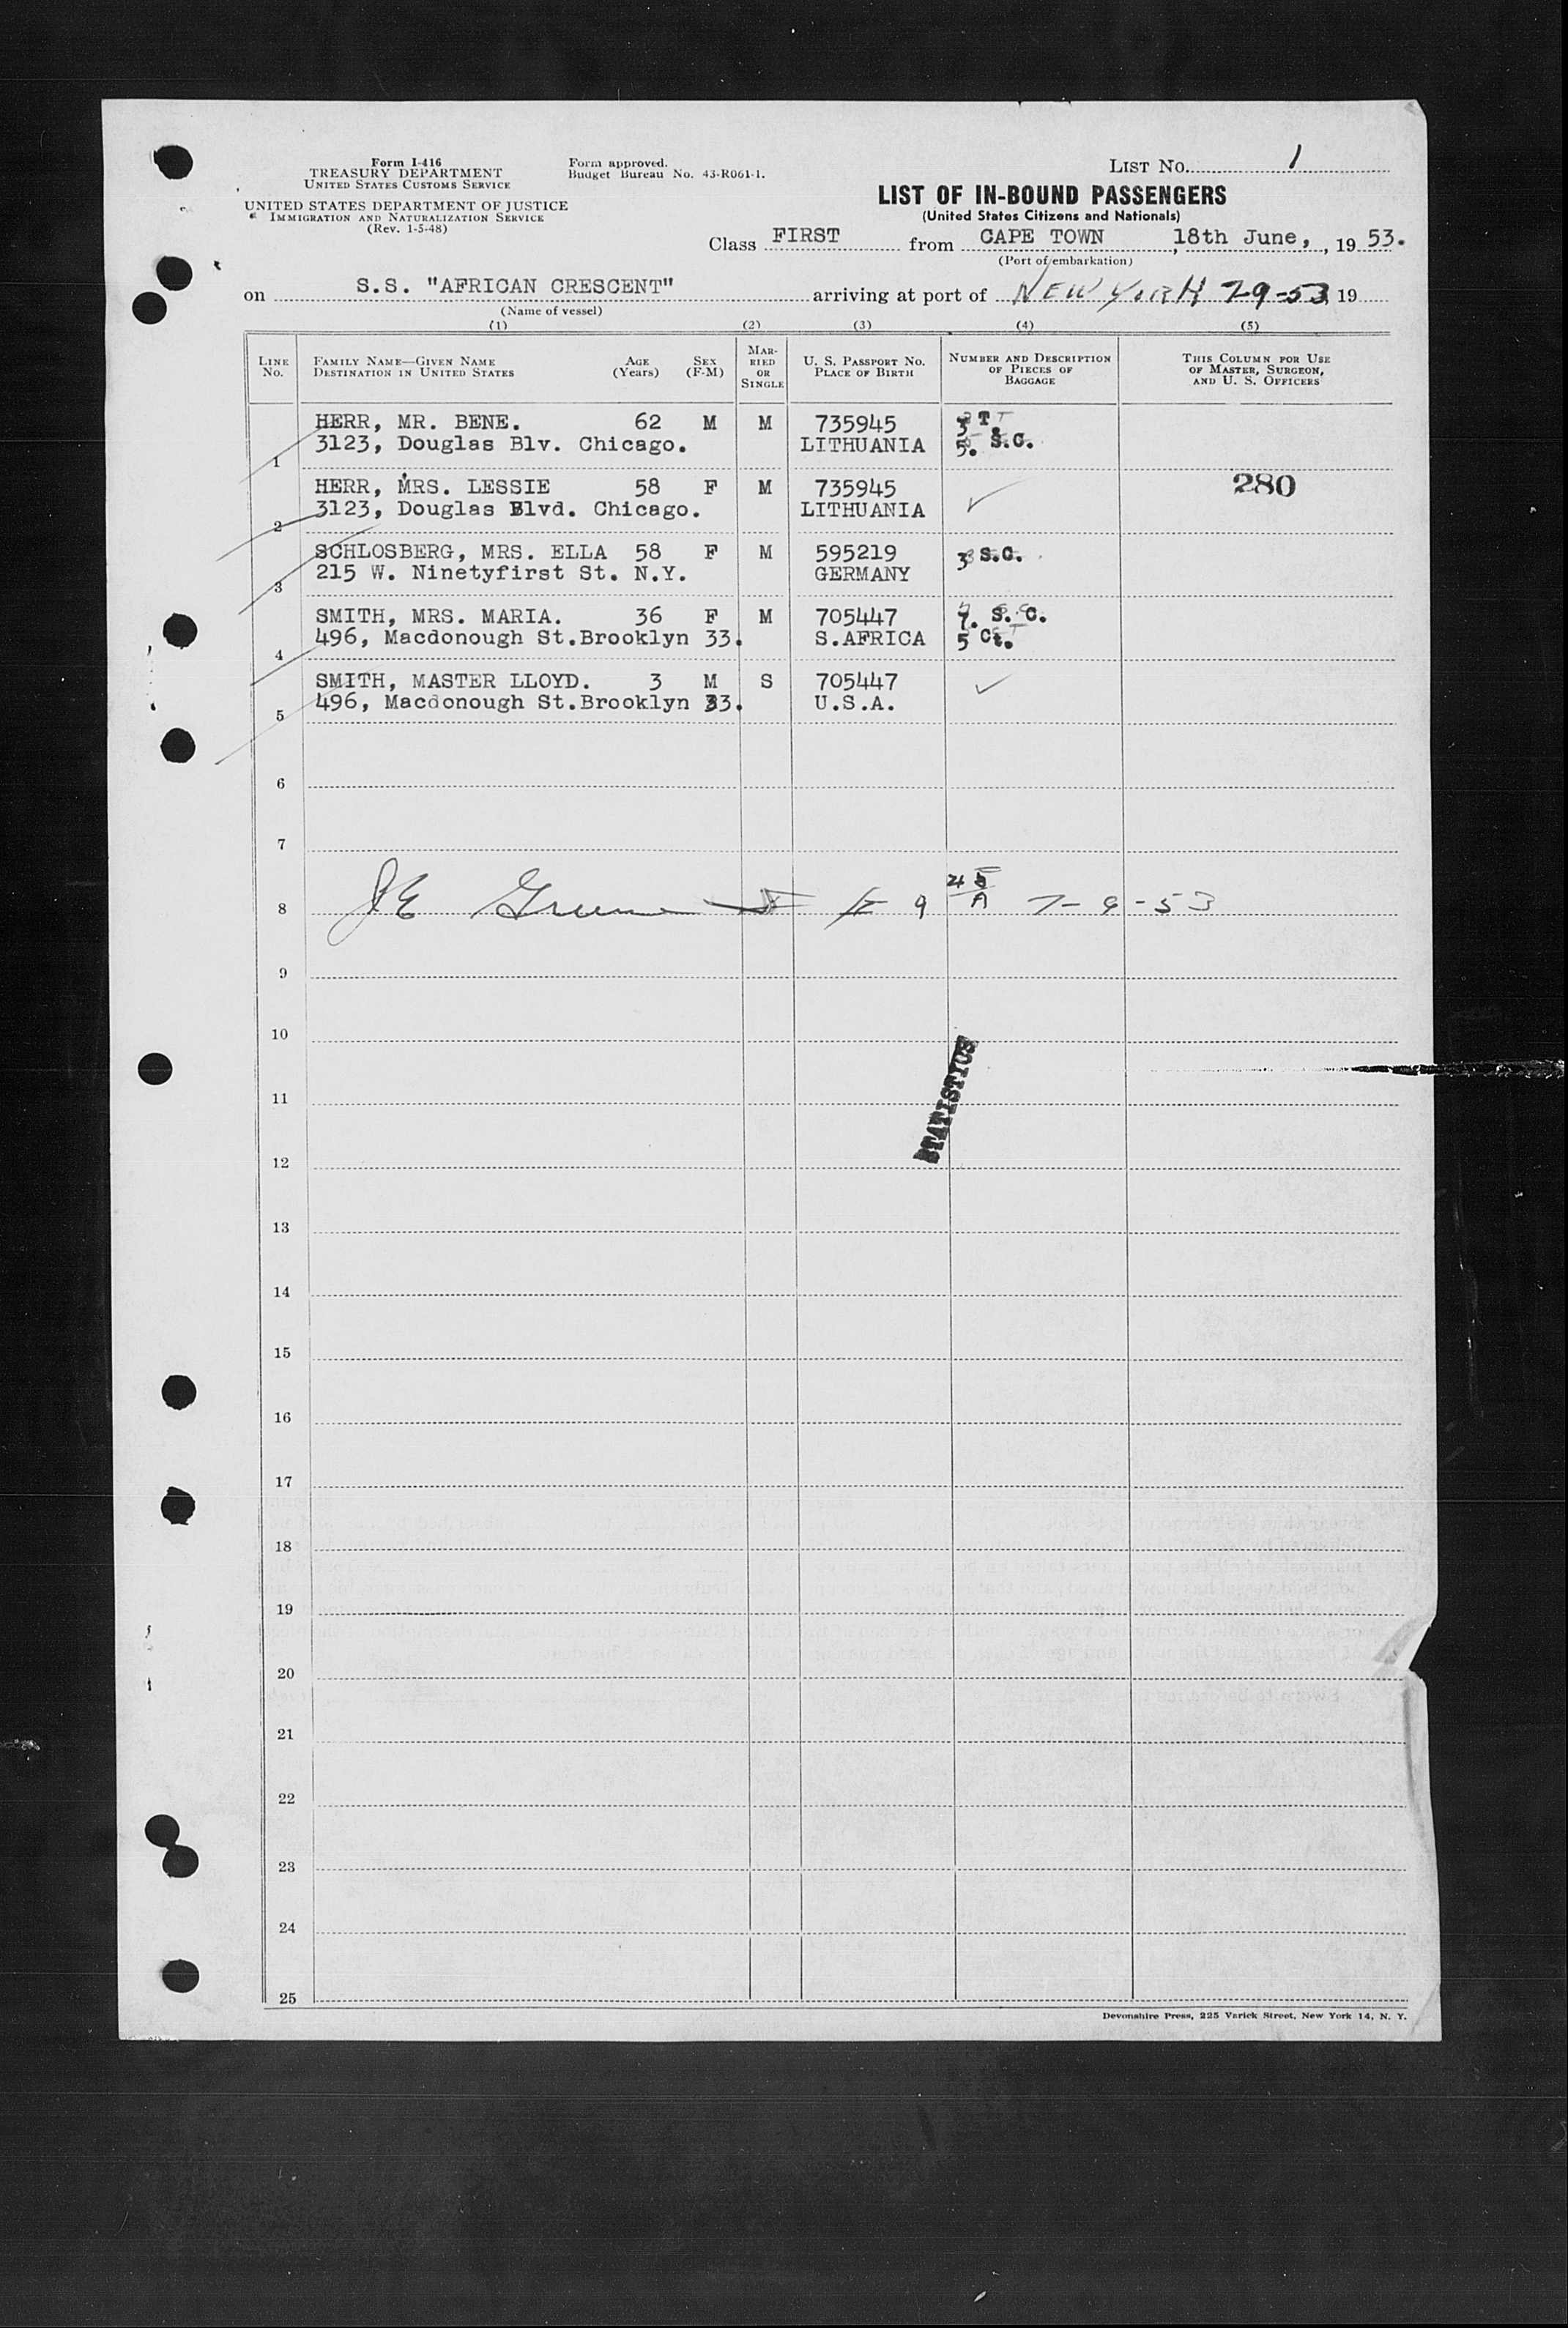 Form I-416
TREASURY DEPARTMENT
UNITED STATES CUSTOMS SERVICE
UNITED STATES DEPARTMENT OF JUSTICE
IMMIGRATION AND NATURALIZATION SERVICE
(Rev. 1-5-48)
Form approved.
Budget Bureau No. 43-R061-1.
LIST No. 1
LIST OF IN-BOUND PASSENGERS
(United States Citizens and Nationals)
Class FIRST from CAPE TOWN, 18th June, , 19 53.
(Port of embarkation)
on S.S. "AFRICAN CRESCENT" arriving at port of NEW YORK 7-9-53, 19
(Name of vessel)
(1) (2) (3) (4) (5)
LINE No. FAMILY NAME—GIVEN NAME DESTINATION IN UNITED STATES AGE (Years) SEX (F-M) MARRIED OR SINGLE U. S. PASSPORT NO. PLACE OF BIRTH NUMBER AND DESCRIPTION OF PIECES OF BAGGAGE THIS COLUMN FOR USE OF MASTER, SURGEON, AND U. S. OFFICERS
HERR, MR. BENE. 62 M M 735945 3 T.
1 3123, Douglas Blv. Chicago. LITHUANIA 5. S.C.
HERR, MRS. LESSIE 58 F M 735945 280
2 3123, Douglas Blvd. Chicago. LITHUANIA
SCHLOSBERG, MRS. ELLA 58 F M 595219 3 S.C.
3 215 W. Ninetyfirst St. N.Y. GERMANY
SMITH, MRS. MARIA. 36 F M 705447 7. S. C.
4 496, Macdonough St.Brooklyn 33. S.AFRICA 5 Ct.
SMITH, MASTER LLOYD. 3 M S 705447
5 496, Macdonough St.Brooklyn 33. U.S.A.
6
7
8 9 45 A 7-9-53
9
10
STATISTICS
11
12
13
14
15
16
17
18
19
20
21
22
23
24
25
Devonshire Press, 225 Varick Street, New York 14, N. Y.